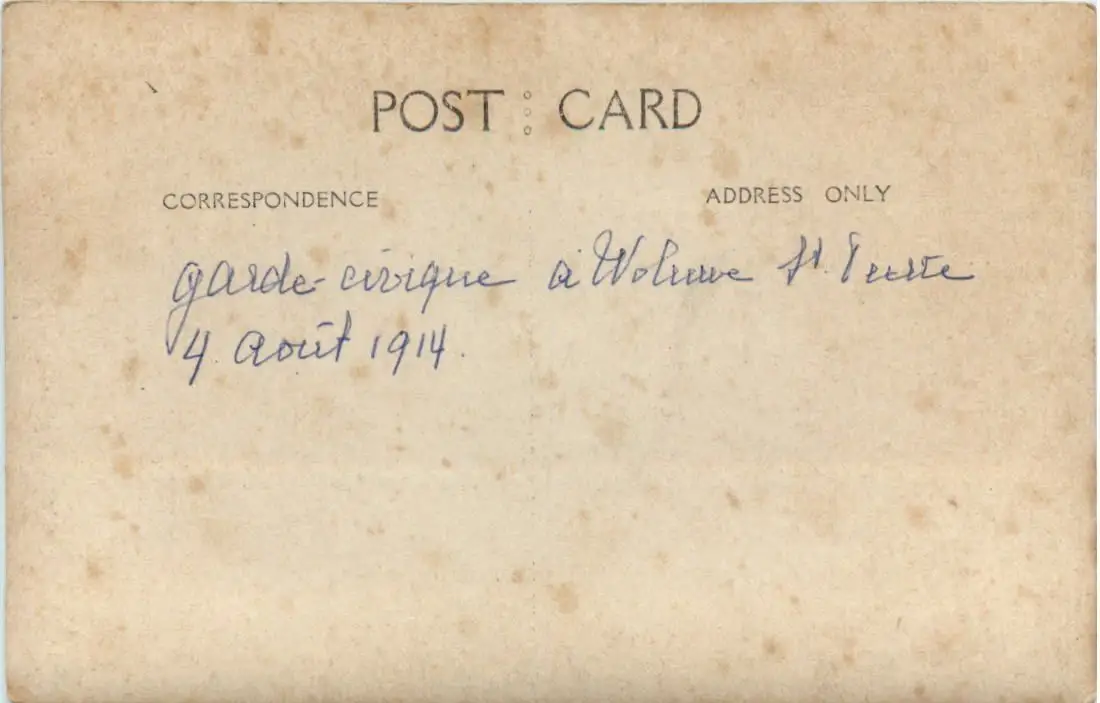 POST CARD
CORRESPONDENCE ADDRESS ONLY
garde-civique à Woluwe St. Pierre
4 Août 1914.